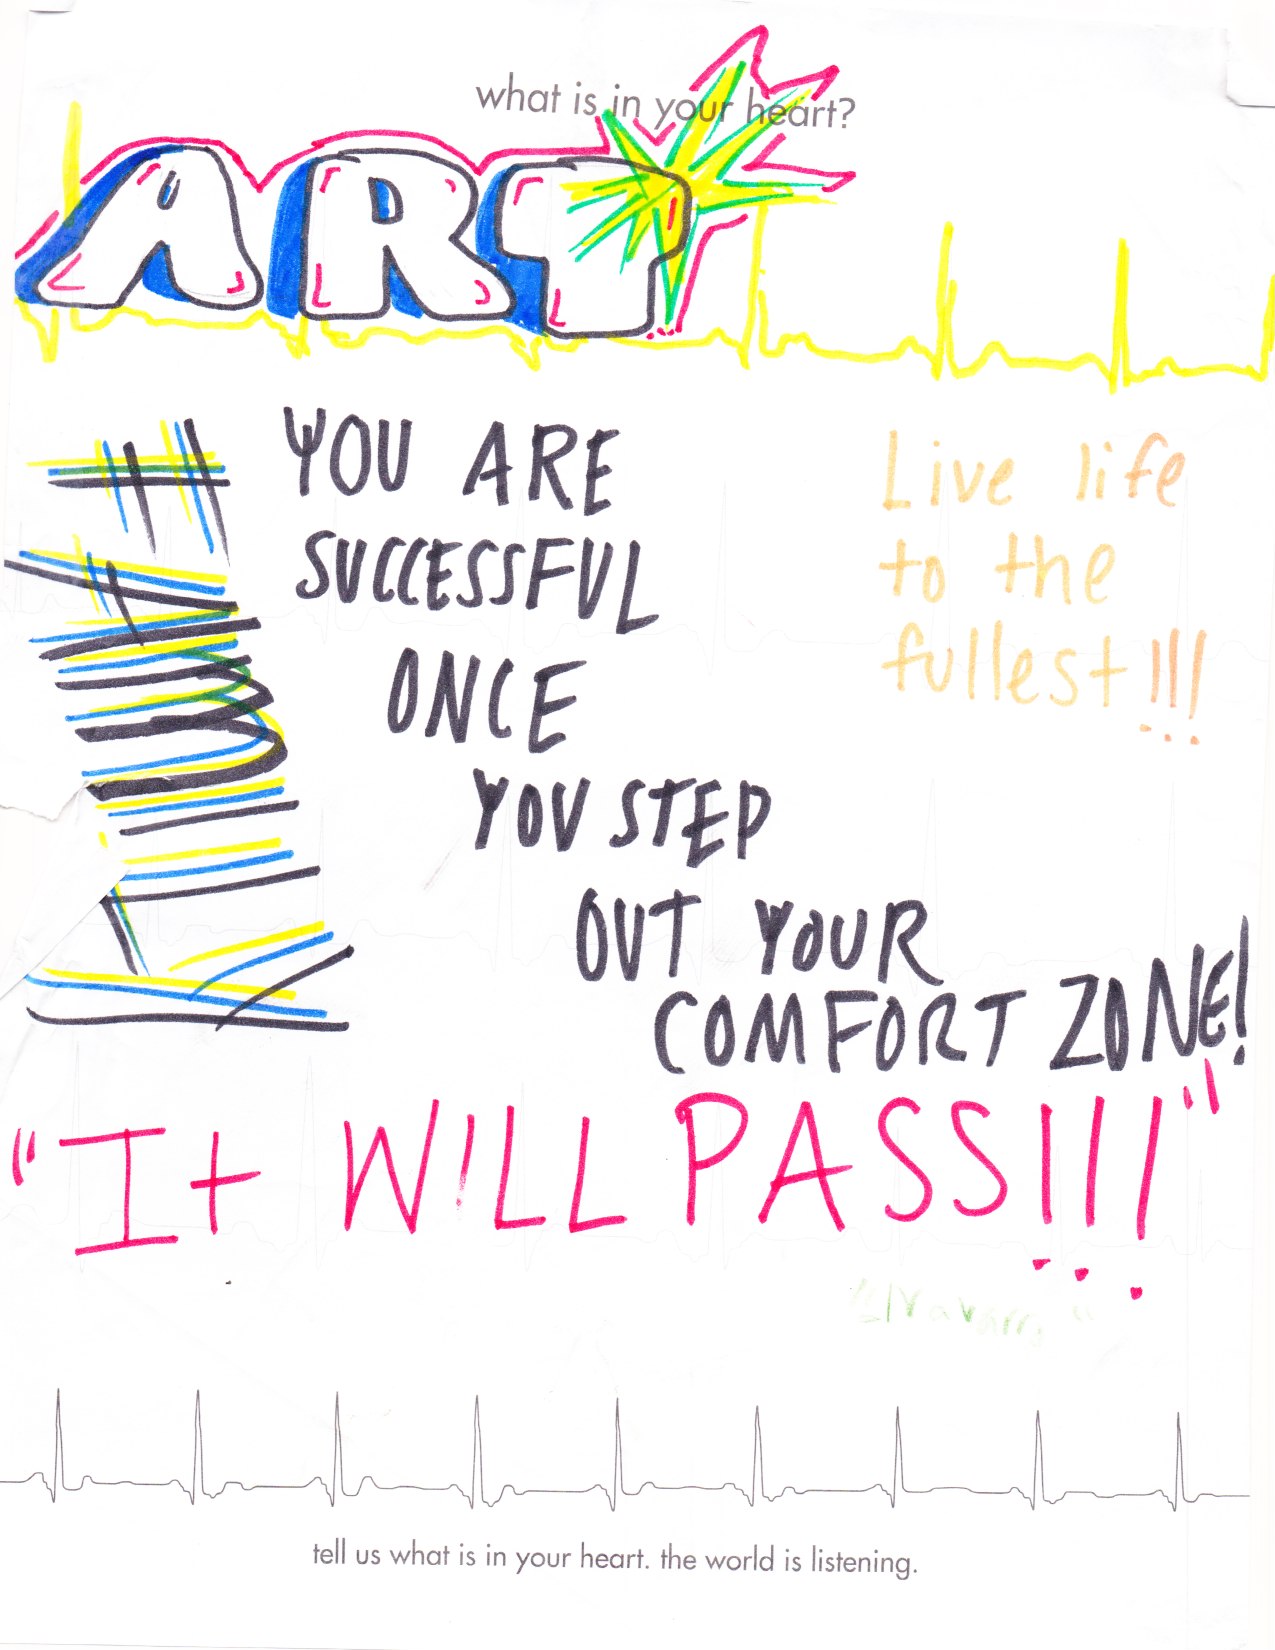 what is in your heart?
ART
YOU ARE
SUCCESSFUL
ONCE
YOU STEP
OUT YOUR
COMFORT ZONE!
Live life
to the
fullest!!!
"It WILL PASS!!!"
tell us what is in your heart. the world is listening.